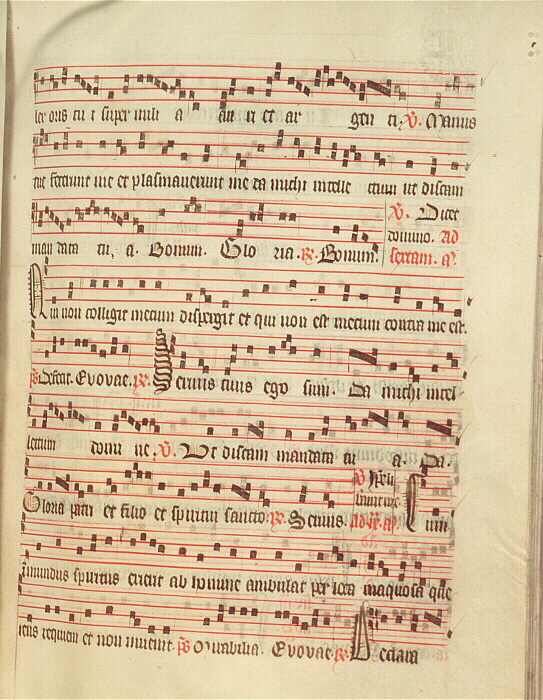 ler oris tu i super mili a au ri et ar gen ti. V. Manus
tue fecerunt me et plasmaverunt me da michi intelle ctum ut discam
man data tu, a. Bonum. Glo ria. R. Bonum.
V. Dicet
domino. Ad
sextam. a.
Qui non colligit mecum dispergit et qui non est mecum contra me est.
ps. Defecit. Evovae. R. Servus tuus ego sum. Da michi intel-
lectum domi ne. V. Ut discam mandata tu a. Da.
Gloria patri et filio et spiritui sancto. R. Servus.
ad
Cum
inmundus spiritus exierit ab homine ambulat per loca inaquosa que
rens requiem et non invenit. ps. Mirabilia. Evovae. R. Declara